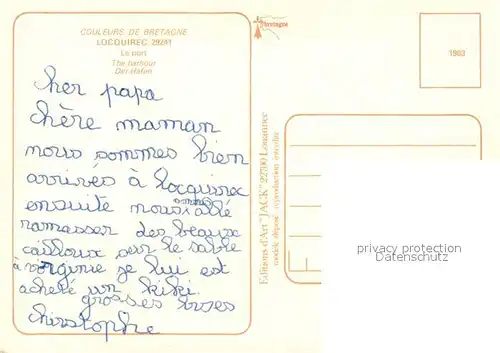 COULEURS DE BRETAGNE
LOCQUIREC 29241
Le port
The harbour
Der Hafen
cher papa
chère maman
nous sommes bien
arrivés à locquirec
ensuite nous sommes allé
ramasser des beaux
cailloux sur le sable
à virginie je lui est
acheté un kiki.
grosses bises
christophe
Editions d'Art "JACK" 22730 Louannec
modèle déposé reproduction interdite
Bretagne
1983
privacy protection
Datenschutz